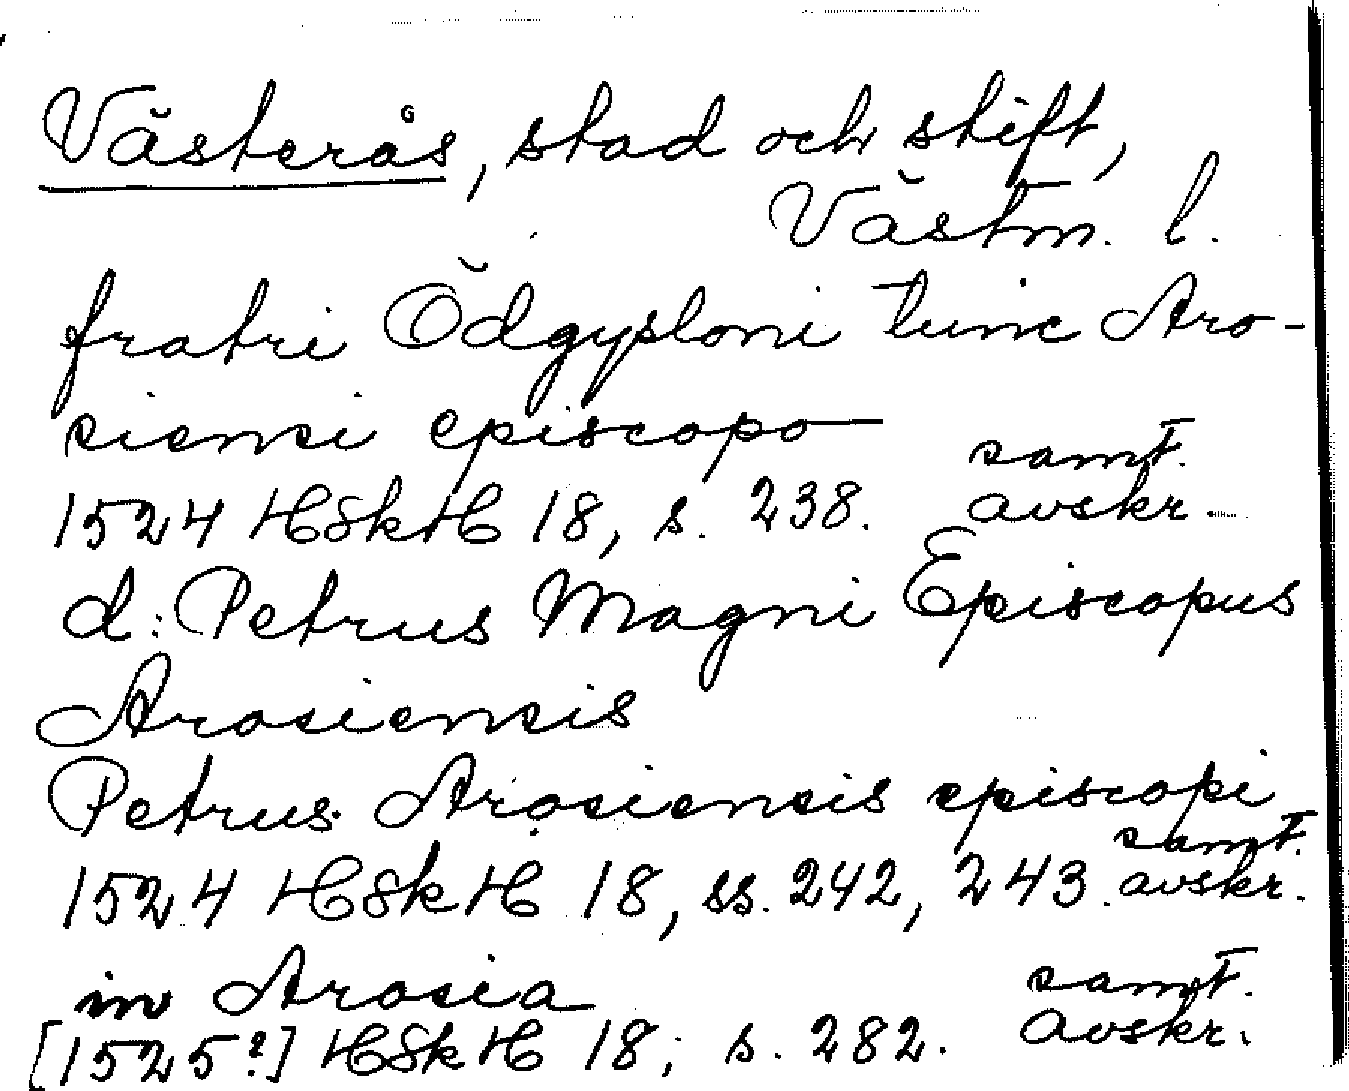 Västerås, stad och stift,
Västm. l.
fratri Ödgysloni tunc Aro-
siensi episcopo
samt.
1524 HSkH 18, s. 238. avskr.
d: Petrus Magni Episcopus
Arosiensis
Petrus Arosiensis episcopi
samt.
1524 HSkH 18, ss. 242, 243. avskr.
in Arosia samt.
[1525?] HSkH 18, s. 282. avskr.